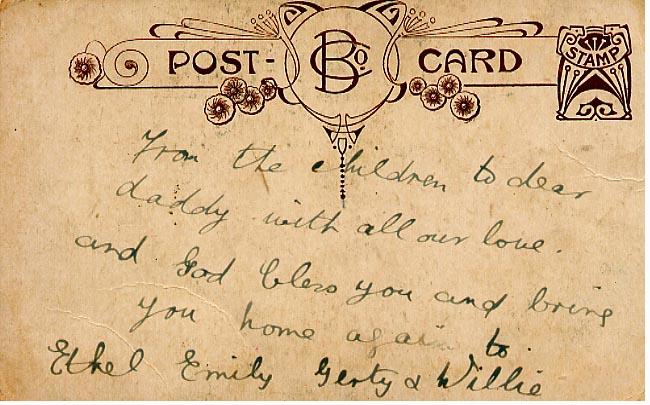 POST- BCo CARD
STAMP
From the children to dear
daddy with all our love.
and God bless you and bring
you home again to.
Ethel Emily Gerty & Willie